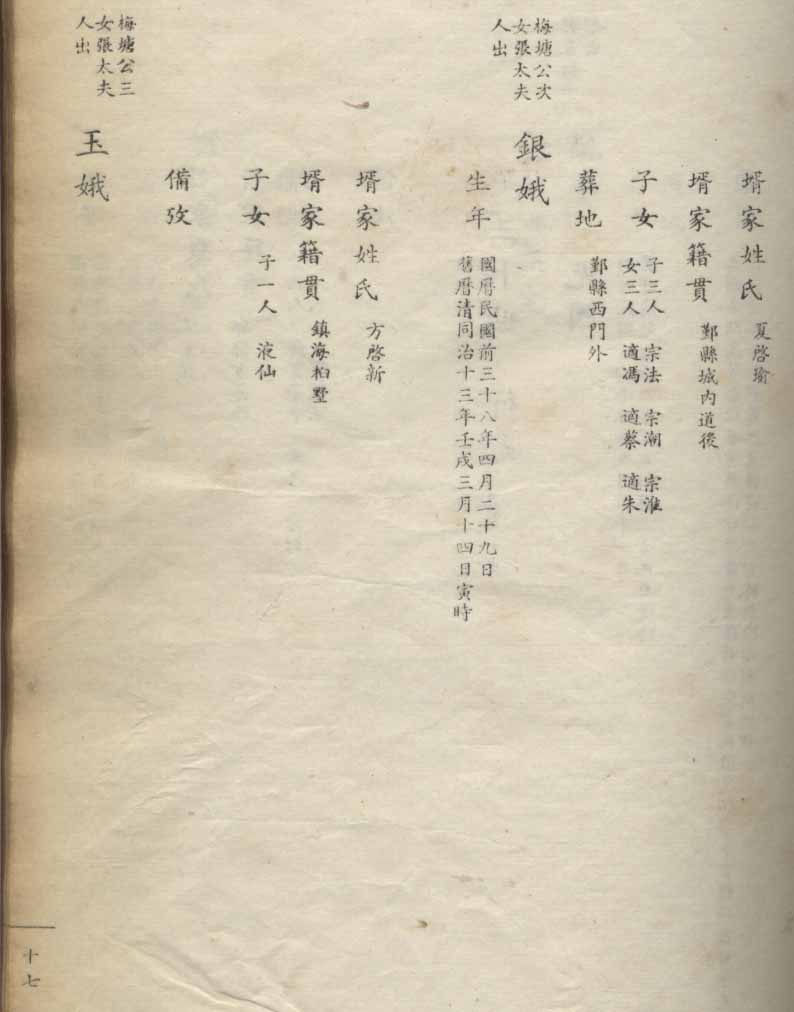 壻家姓氏 夏啓瑜
壻家籍貫 鄞縣城內道後
子女 子三人 宗法 宗潮 宗淮
女三人 適馮 適蔡 適朱
葬地 鄞縣西門外
梅塘公次
女張太夫
人出
銀娥
生年 國曆民國前三十八年四月二十九日
舊曆清同治十三年壬戌三月十四日寅時
壻家姓氏 方啓新
壻家籍貫 鎮海柏墅
子女 子一人 液仙
備攷
梅塘公三
女張太夫
人出
玉娥
十七